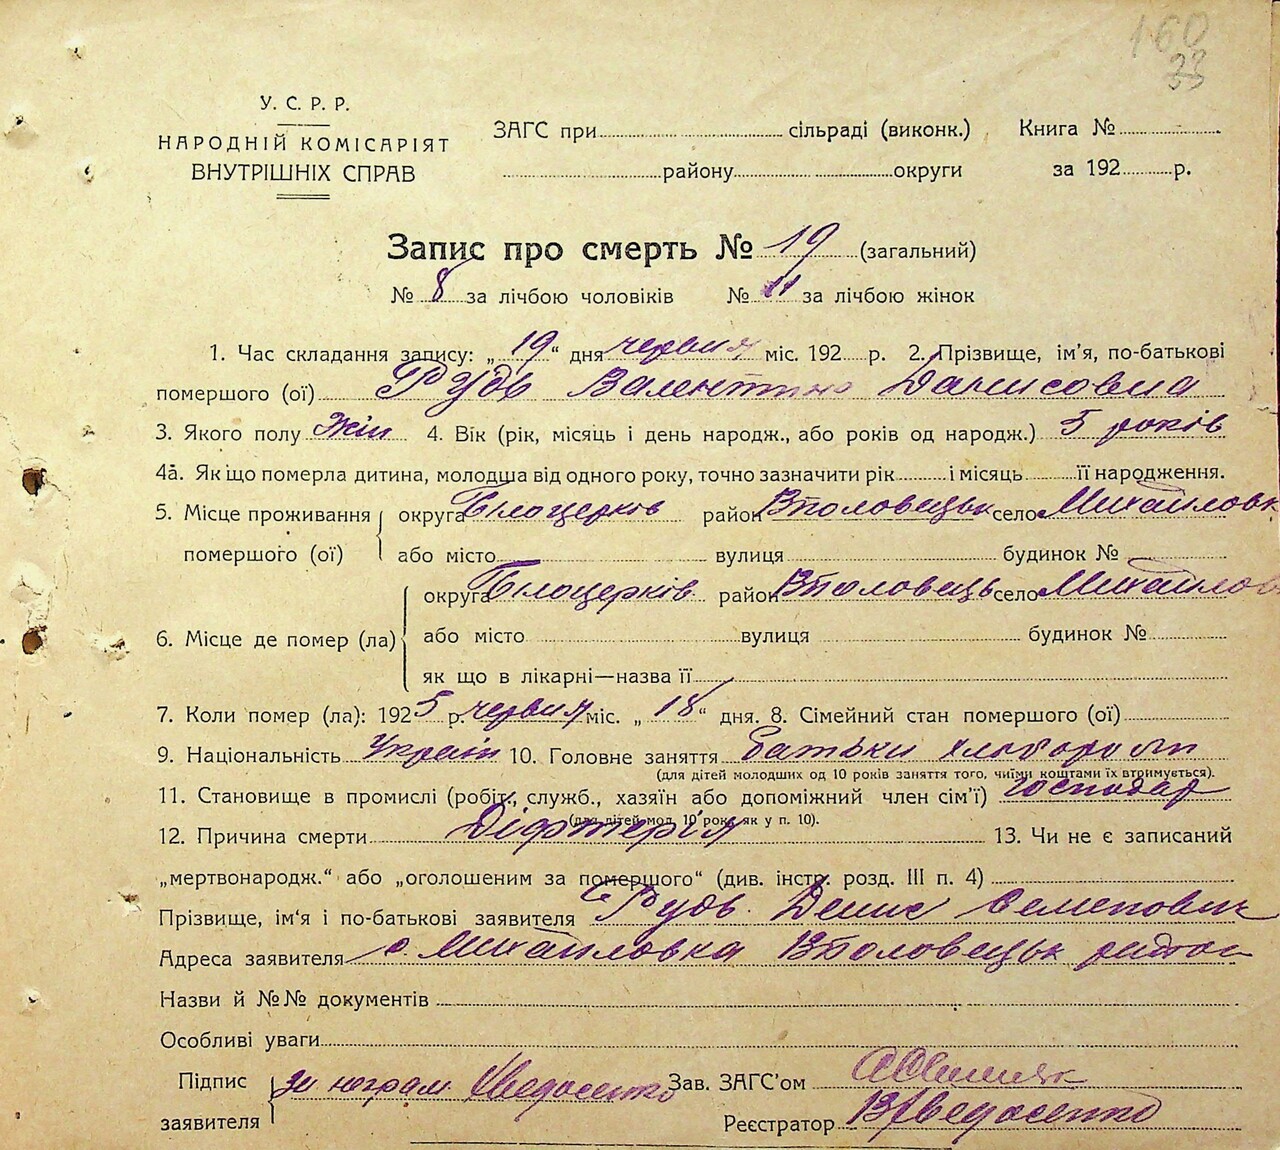 160
33
У. С. Р. Р.
НАРОДНІЙ КОМІСАРІЯТ
ВНУТРІШНІХ СПРАВ
ЗАГС при сільраді (виконк.) Книга №
району округи за 192 р.
Запис про смерть № 19 (загальний)
№ 8 за лічбою чоловіків № 11 за лічбою жінок
1. Час складання запису: „19“ дня червня міс. 192 р. 2. Прізвище, ім'я, по-батькові
помершого (ої) Рудь Валентина Данисовна
3. Якого полу Жін 4. Вік (рік, місяць і день народж., або років од народж.) 5 років
4а. Як що померла дитина, молодша від одного року, точно зазначити рік і місяць її народження.
5. Місце проживання помершого (ої) округа Білоцерків район Вполовецьк село Михайловк
або місто вулиця будинок №
6. Місце де помер (ла) округа Білоцерків район Вполовець село Михайлов
або місто вулиця будинок №
як що в лікарні—назва її
7. Коли помер (ла): 1925 р. червня міс. „18“ дня. 8. Сімейний стан помершого (ої)
9. Національність Україн 10. Головне заняття батьки хлібороби
(для дітей молодших од 10 років заняття того, чиїми коштами їх втримується).
11. Становище в промислі (робіт., служб., хазяїн або допоміжний член сім'ї) господар
(для дітей мол. 10 років як у п. 10).
12. Причина смерти Діфтерія 13. Чи не є записаний
„мертвонародж.“ або „оголошеним за помершого“ (див. інстр. розд. III п. 4)
Прізвище, ім'я і по-батькові заявителя Рудь Денис Семенович
Адреса заявителя с. Михайловка Вполовецьк район
Назви й №№ документів
Особливі уваги
Підпис заявителя за неграм. Зав. ЗАГС'ом
Реєстратор